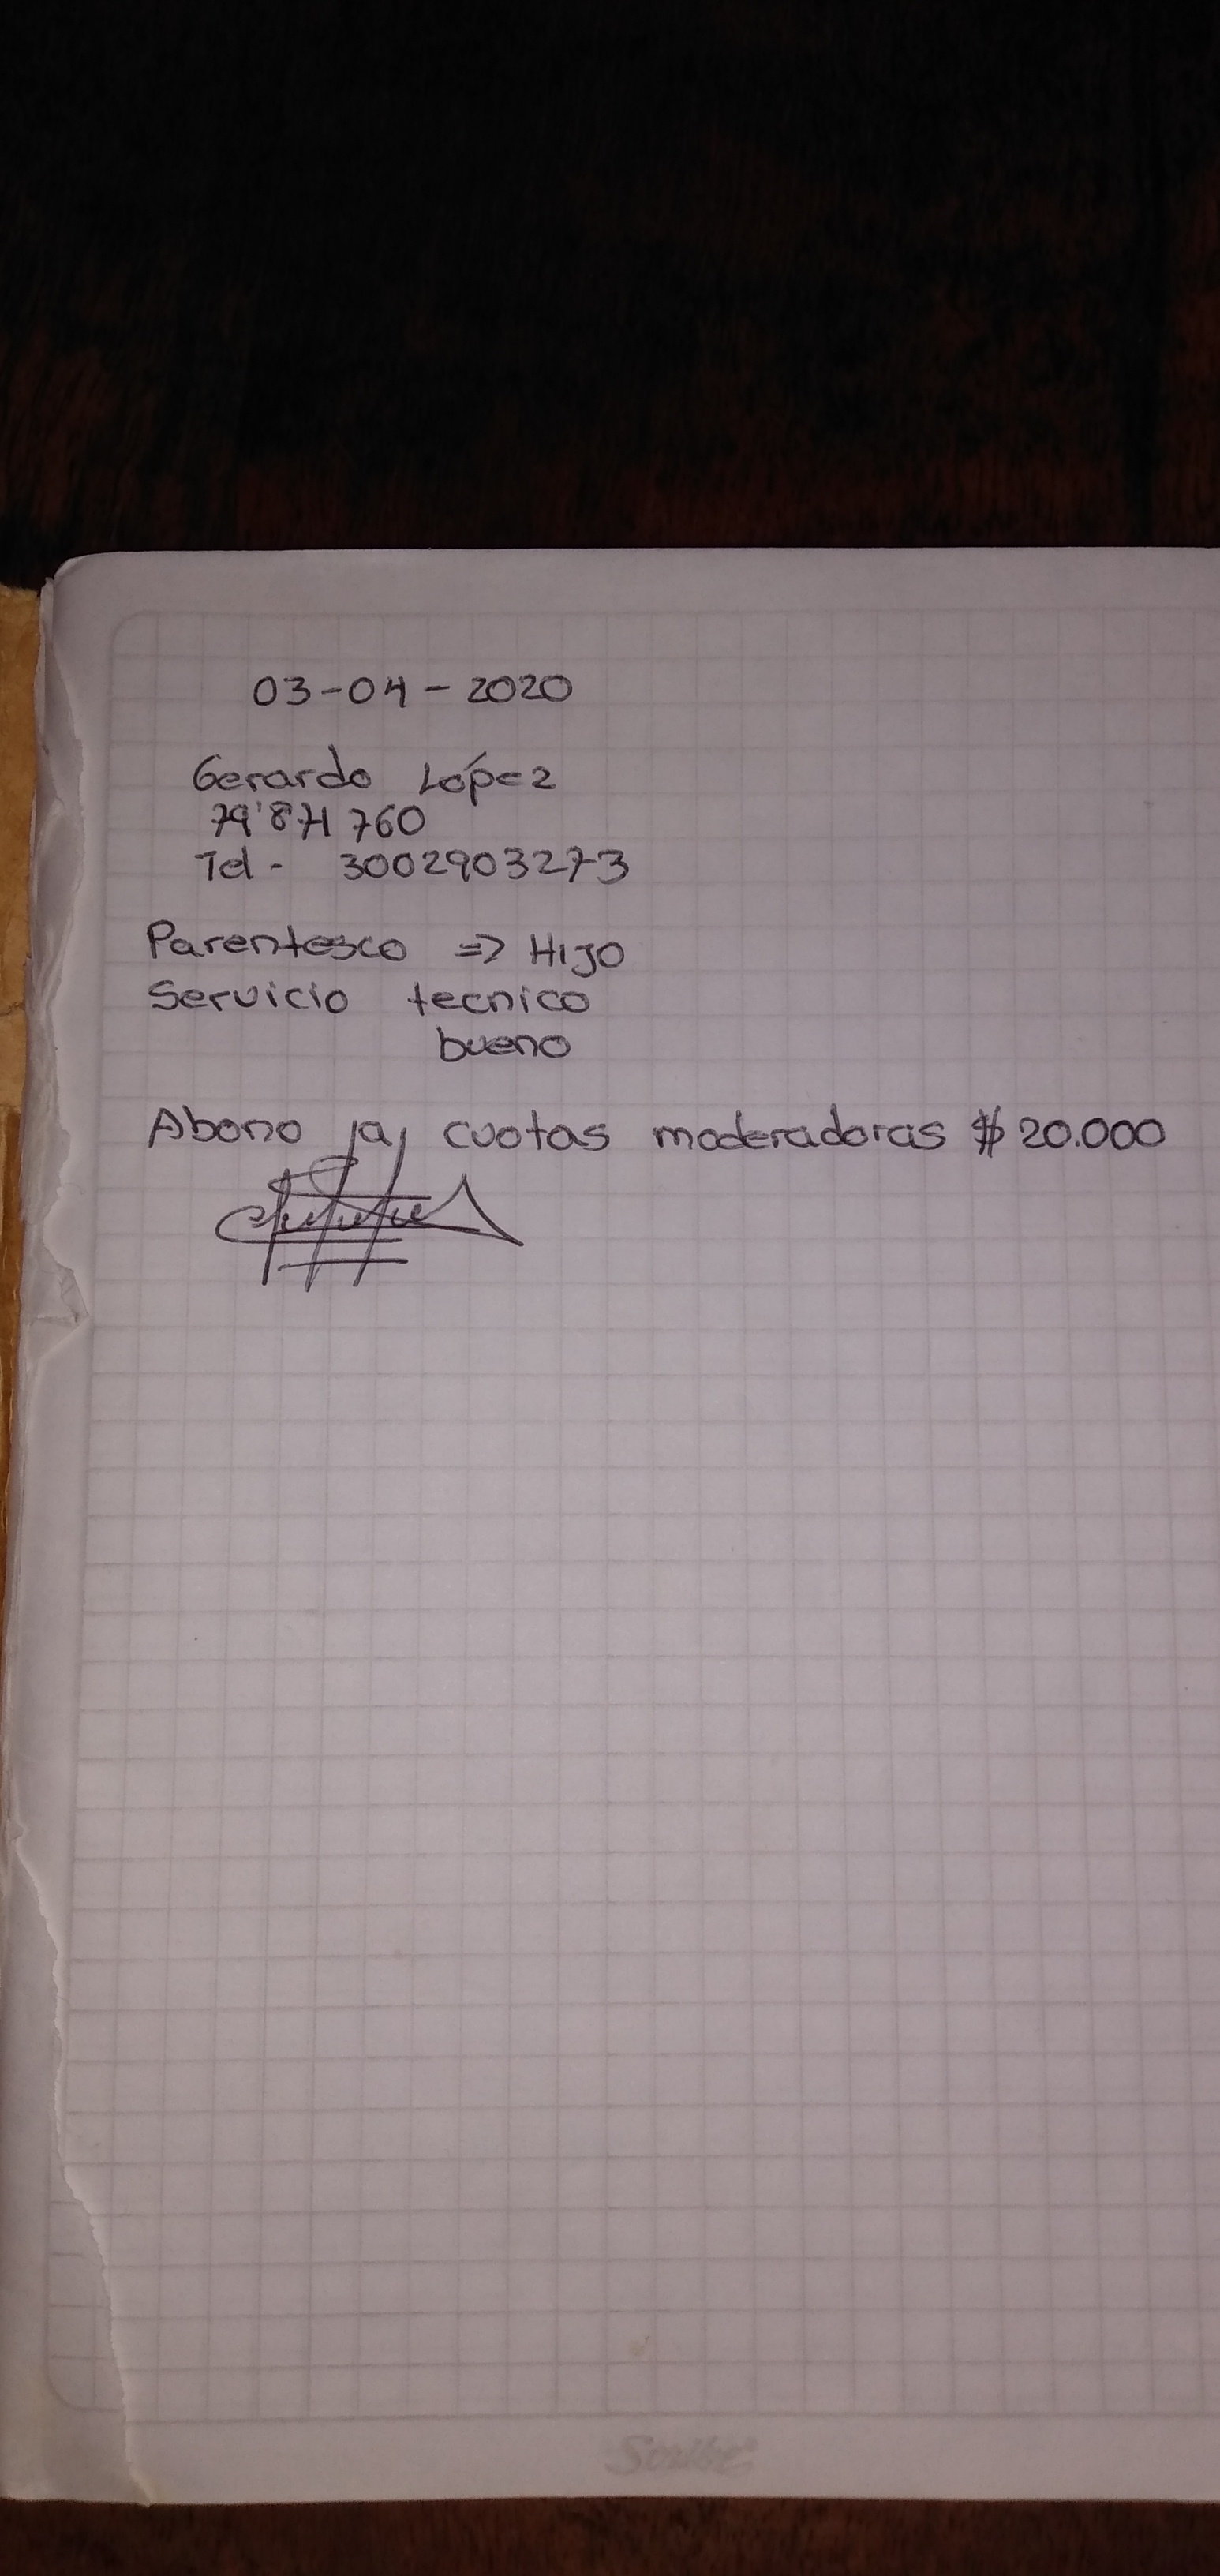 03-04-2020
Gerardo López
79'871760
Tel- 3002903273
Parentesco => Hijo
Servicio tecnico
bueno
Abono a cuotas moderadoras $20.000
Scribe